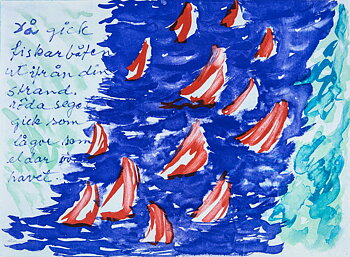 Då gick
fiskarbåten
ut ifrån din
strand.
röda segel
gick som
lågor som
eldar över
havet.